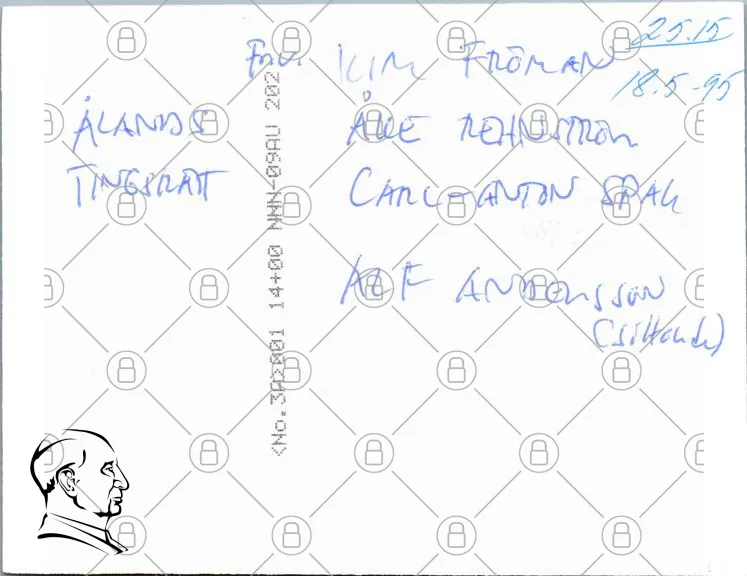 25.15
18.5-95
Fr.v. KIM FRÖMAN
ÅLANDS ÅKE REHNSTRÖM
TINGSRÄTT CARL-ANTON SPAK
ALF ANDERSSON
(sittande)
<No.3A2001 14+00 NNN-09AU 202